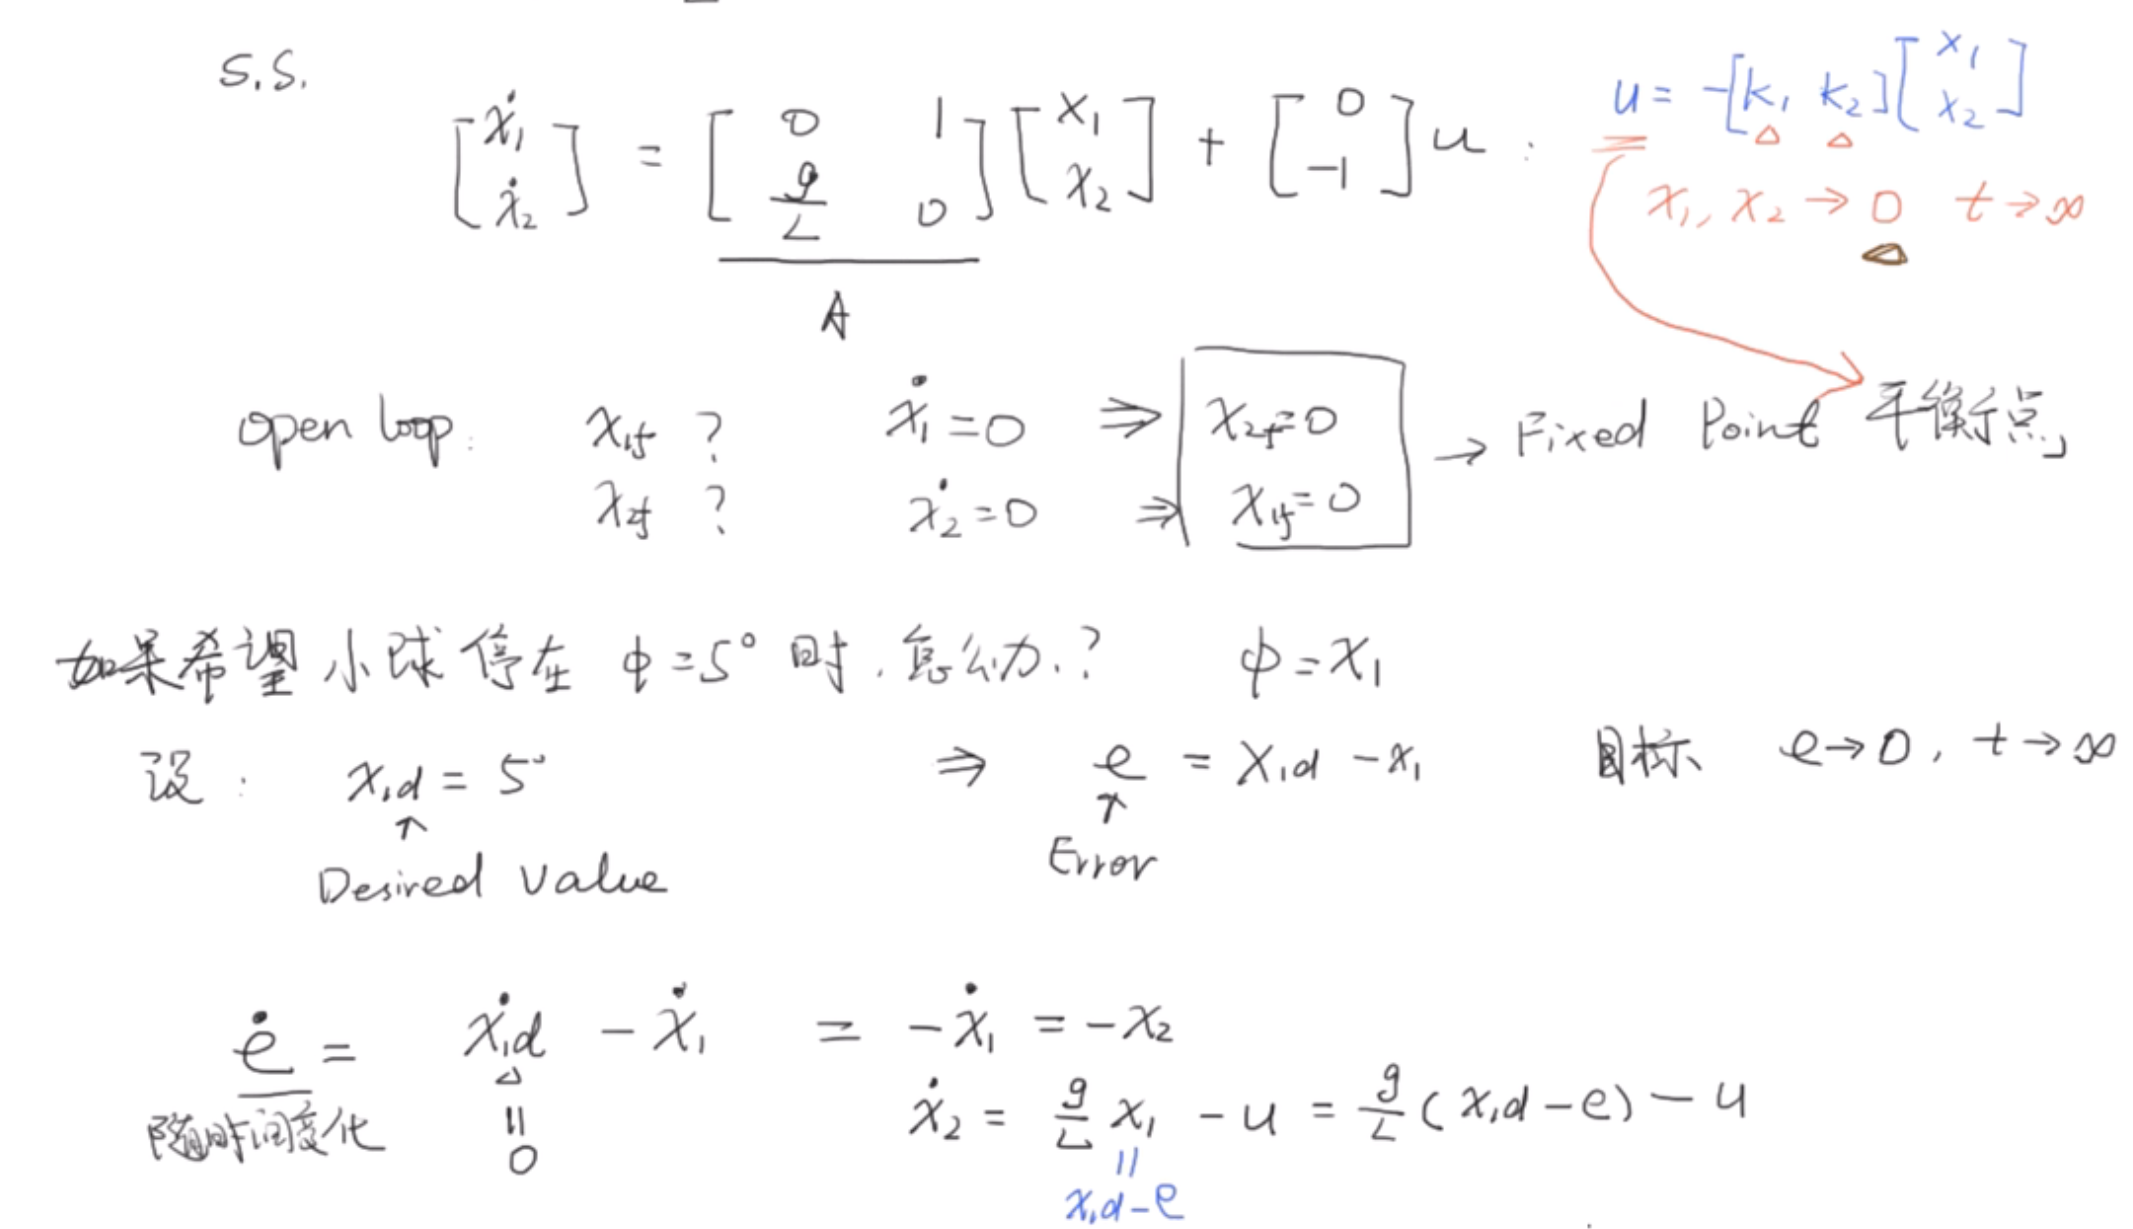 S.S.
[ẋ₁ ẋ₂] = [0 1 g/L 0] [x₁ x₂] + [0 -1] u :
A
u = -[k₁ k₂] [x₁ x₂]
x₁, x₂ → 0 t → ∞
open loop: x₁f ? ẋ₁ = 0 ⇒ x₂f = 0
x₂f ? ẋ₂ = 0 ⇒ x₁f = 0
→ Fixed Point 平衡点
如果希望小球停在 φ = 5° 时,怎么办? φ = x₁
设: x₁d = 5° ⇒ e = x₁d - x₁ 目标 e → 0, t → ∞
↑ ↑
Desired Value Error
ė = ẋ₁d - ẋ₁ = -ẋ₁ = -x₂
随时间变化 = 0
ẋ₂ = g/L x₁ - u = g/L (x₁d - e) - u
= x₁d - e